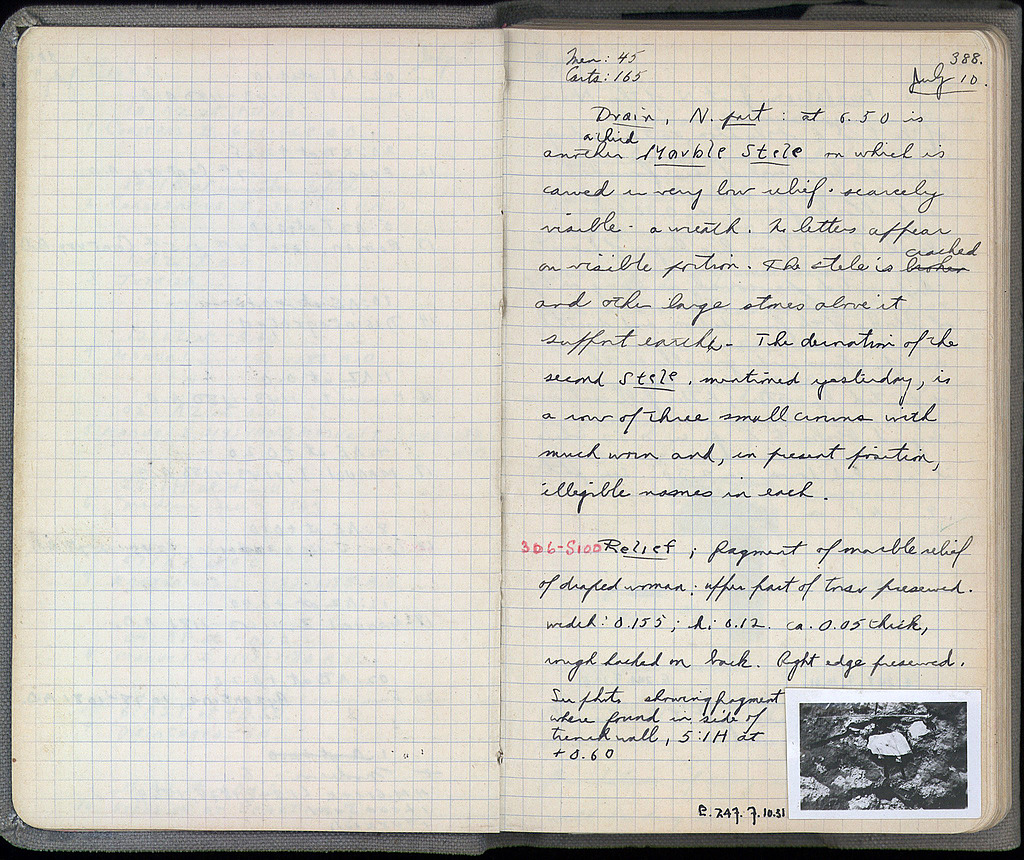 Men: 45
Carts: 165
388.
July 10.
Drain, N. part: at 6.50 is
a third
another Marble Stele on which is
carved in very low relief - scarcely
visible - a wreath. No letters appear
cracked
on visible portion. The stele is broken
and other large stones above it
support earth - The decoration of the
second Stele, mentioned yesterday, is
a row of three small crowns with
much worn and, in present position,
illegible names in each.
306-S100 Relief; fragment of marble relief
of draped woman: upper part of torso preserved.
width: 0.155; h: 0.12. ca. 0.05 thick,
rough backed on back. Right edge preserved.
See photo showing fragment
where found in side of
trench wall, 5:1H at
+0.60
E. 247. 7.10.31